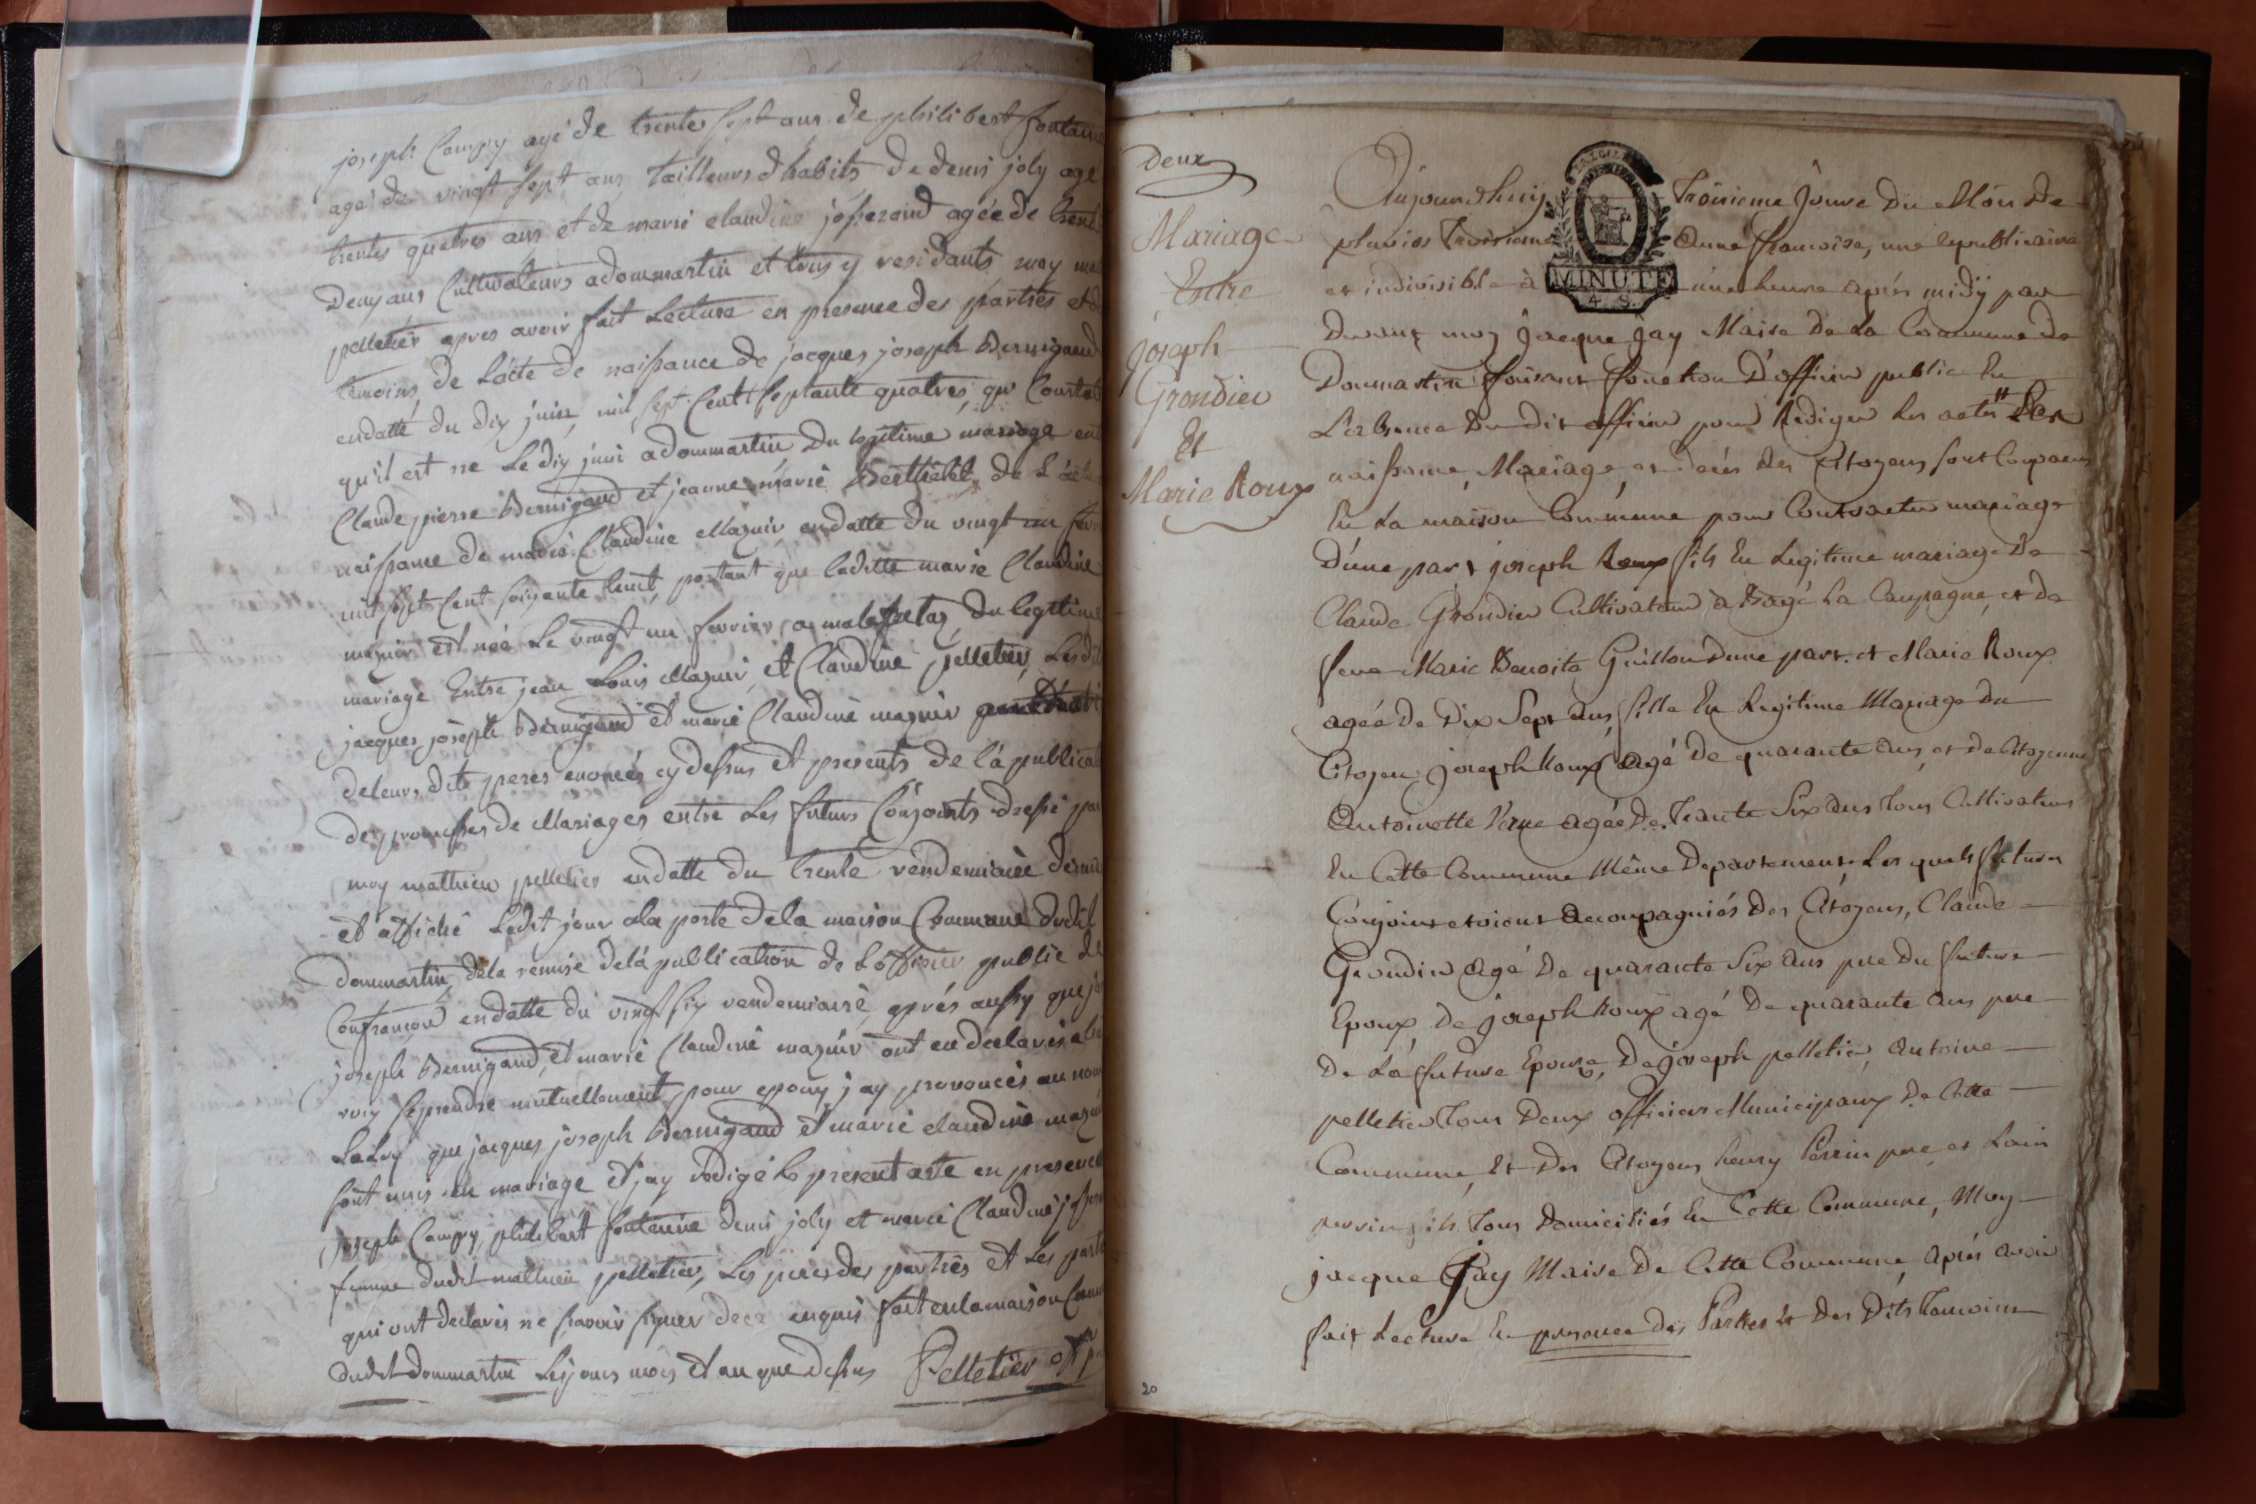 joseph Compy agé de trente sept ans de philibert fontaine
agé de vingt sept ans tailleurs d'habits de denis joly agé
trentes quatres ans et de marie claudine josserand agée de trente
deux ans Cultivateurs a dommartin et tous y residants moy
pelletier apres avoir fait Lecture en presence des parties et
temoins de Lacte de naissance de jacques joseph Bernigaud
endatté du dix juin mil sept Cent septante quatres qui
qu'il est ne Le dix juin a dommartin Du legitime mariage
Claude pierre Bernigaud et jeanne marie Berthelet de L'acte
naissance de marie Claudine Maznir endatte du vingt un
mil sept Cent soixante huit, portant que ladite marie Claudine
maznir est née Le vingt un fevrier a malafretaz du legitime
mariage Entre jean Louis Maznir et Claudine pelletier, Les
jacques joseph Bernigaud et marie Claudine maznir
de leurs dits peres enoncés cy dessus et presents de la
des promesses de Mariages entre Les futurs Conjoints dressé par
moy mathieu pelletier endatte du trente vendemiaire
et affiché Ledit jour a la porte de la maison Commune dudit
dommartin, de la remise de la publication de L'officier public de
Confrançon endatte du vingt six vendemiaire, aprés aussy que
joseph Bernigaud, et marie Claudine maznir ont eu declarés a
voix se prendre mutuellement pour epoux j'ay prononcés au nom
La Loy que jacques joseph Bernigaud et marie claudine
sont unis en mariage et j'ay rédigé le present acte en presence
joseph Compy, philibert fontaine denis joly et marie Claudine
femme dudit mathieu pelletier, Les peres des parties et Les
qui ont declarés ne savoir signer de ce enquis fait en la maison
dudit dommartin Les jours mois et an que dessus Pelletier off p
deux
Mariage
Entre
joseph
Grondier
Et
Marie Roux
MINUTE
4. S.
Aujourdhuy Troisieme jours du Mois de
pluvios Troisieme Anne francoise, une republicaine
et indivisible à une heure aprés midy par
devant moy Jacque Jay Maire de La Commune de
Dommartin faisant fonction D'officier public En
L'absence Du dit officier pour Rediger Les actes Des
naissance, Mariage, et decés des Citoyens sont Comparus
En La maison Commune pour Contracter mariage
D'une part joseph Roux fils En Legitime mariage De
Claude Grondier Cultivateur à Bagé La Campagne, et de
feue Marie Benoite Guillon dune part. et Marie Roux
agée De Dix Sept Ans, fille En Legitime Mariage Du
Citoyen joseph Roux agé De quarante ans, et de Citoyenne
Antoinette agée De Trante Six ans tous Cultivateurs
En Cette Commune Même Departement, Les quels futurs
Conjoint etoient accompagniés Des Citoyens, Claude
Grondier agé De quarante Six Ans pere Du future
Epoux, De joseph Roux agé De quarante Ans pere
De La future Epouze, De joseph pelletier, Antoine
pelletier tous Deux officiers Municipaux De Cette
Commune, Et Des Citoyens henry Perrin pere et Loüis
perrin fils Tous Domiciliés En Cette Commune, Moy
jacque Jay Maire De Cette Commune, aprés avoir
fait Lecture En presence Des Parties Et Des Dits Temoins
20